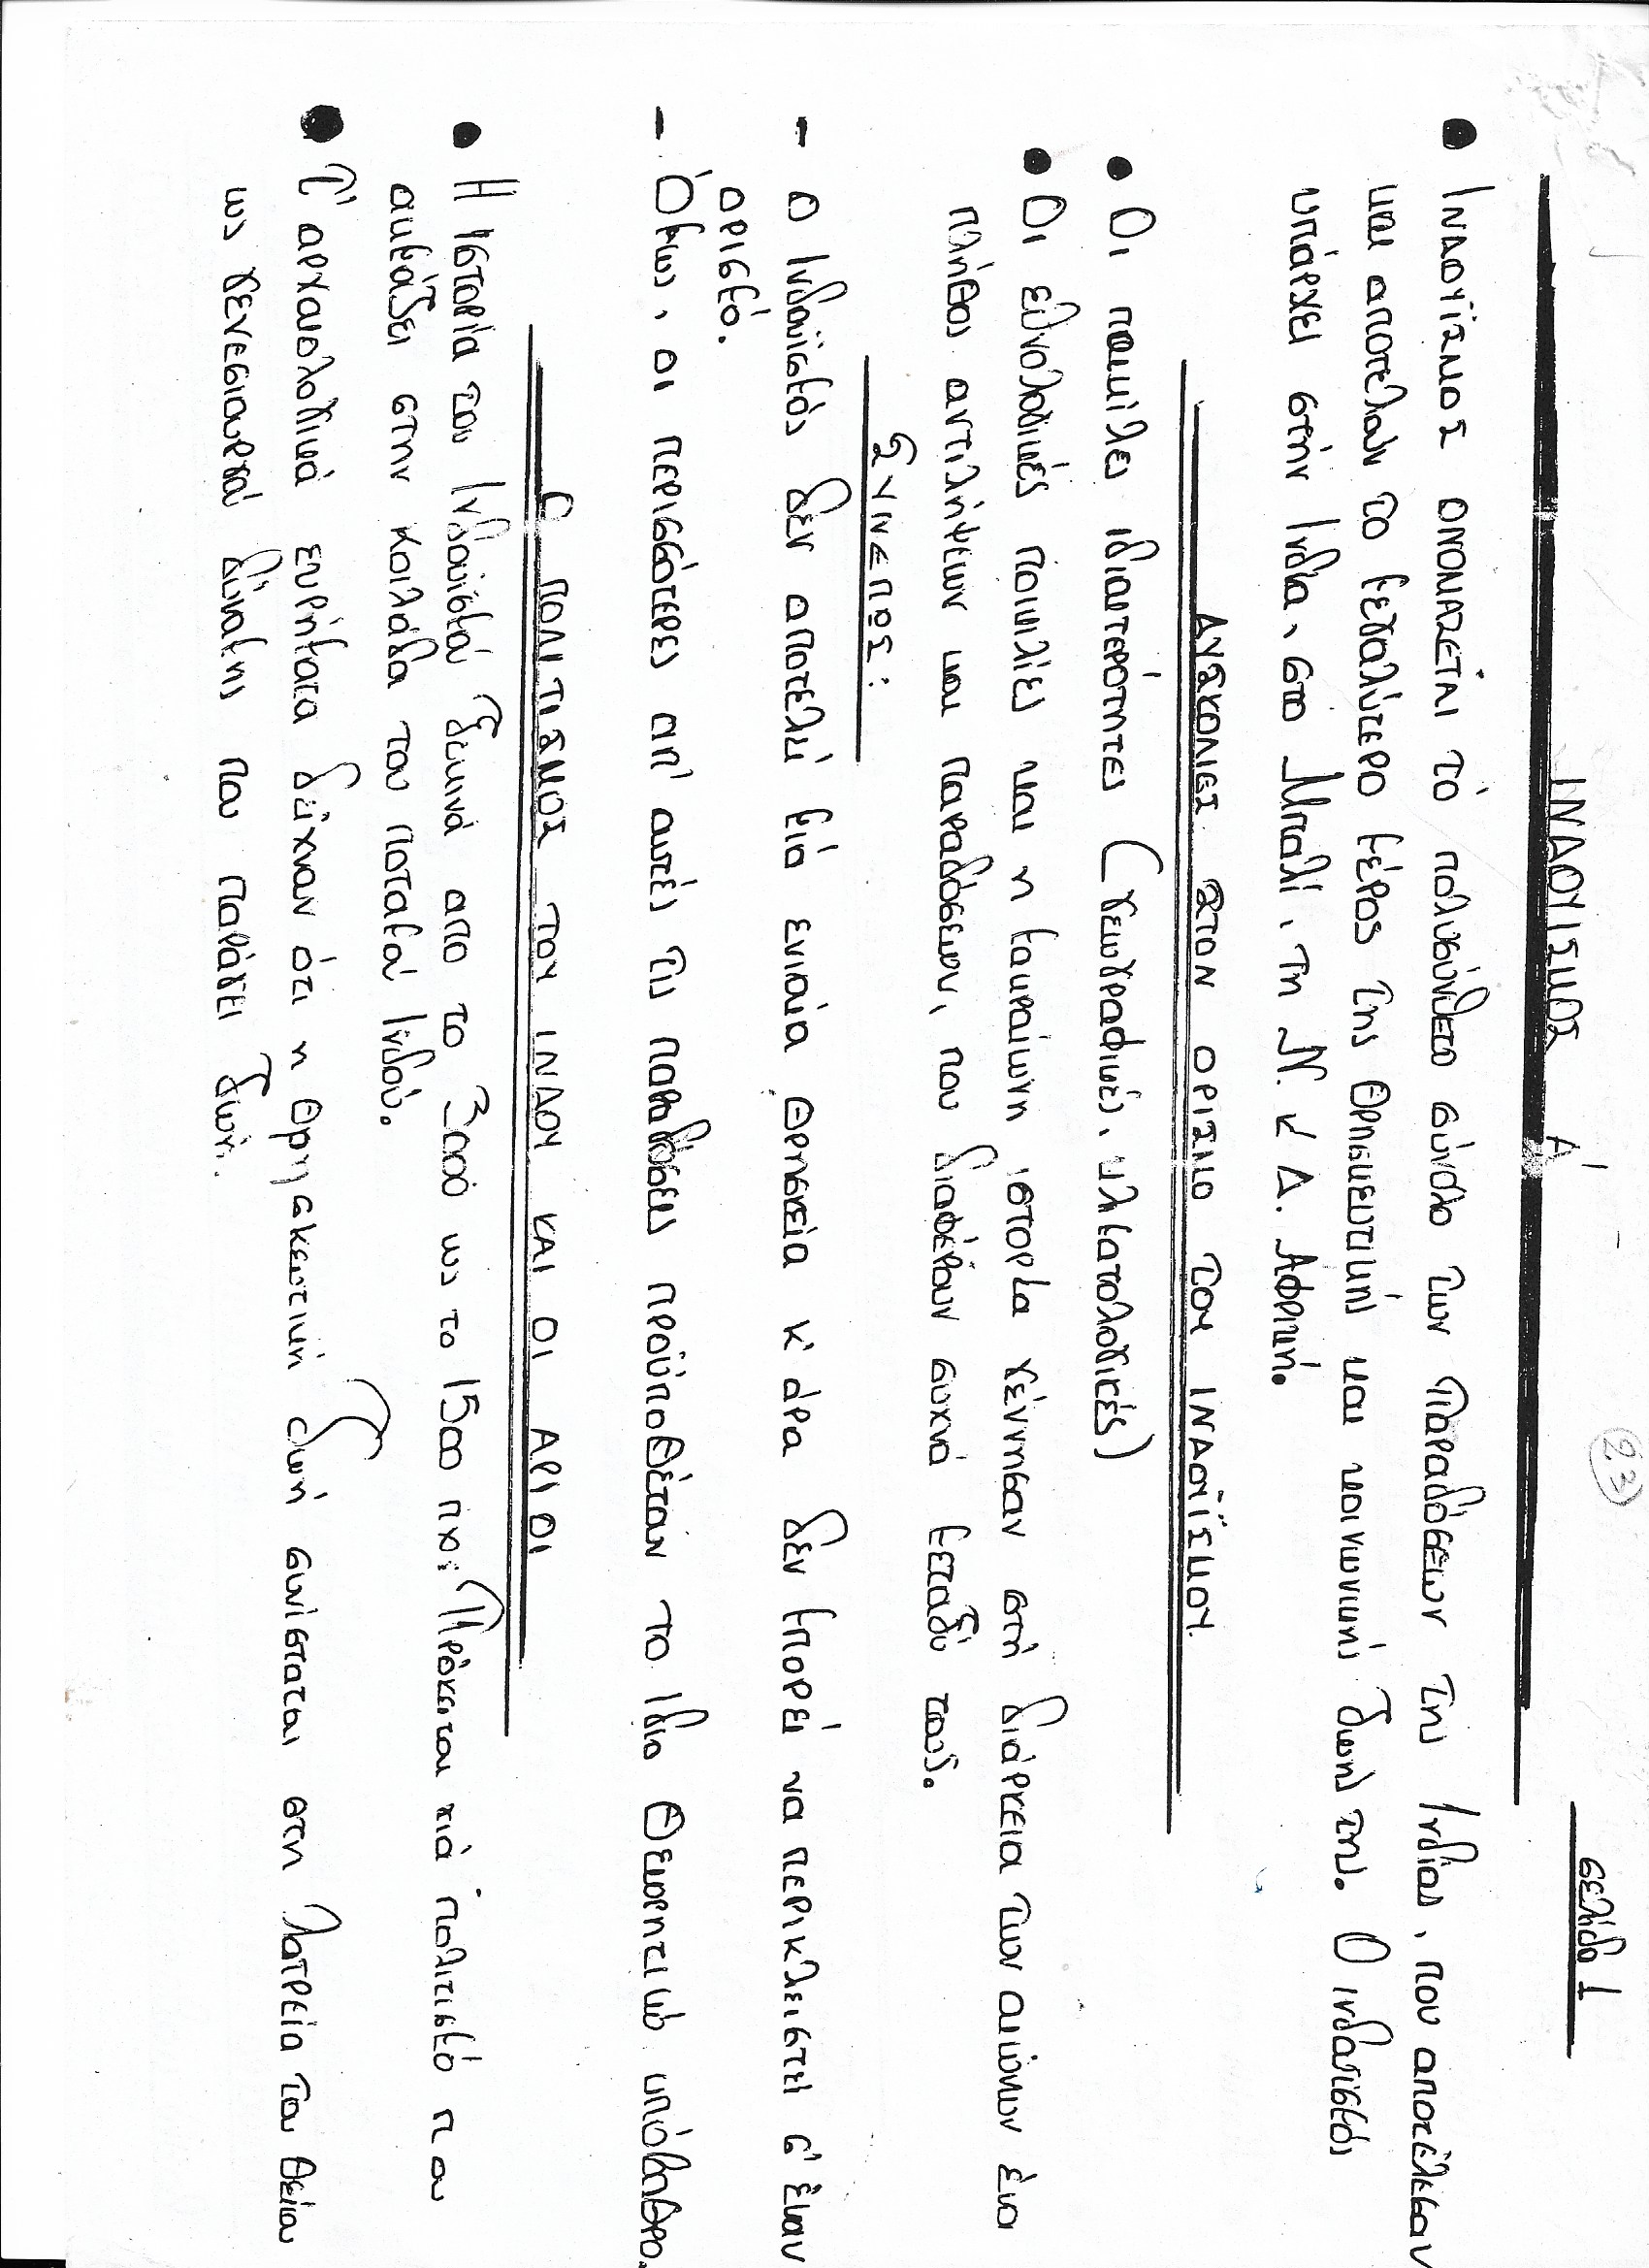 σελίδα 1
23
ΙΝΔΟΥΙΣΜΟΣ Α'
• Ινδουϊσμος ονομάζεται τό πολυσύνθετο σύνολο των Παραδόσεων της Ινδίας, που αποτέλεσαν
και αποτελούν το μεγαλύτερο μέρος της θρησκευτικής και κοινωνικής ζωής της. Ο ινδουισμός
υπάρχει στήν Ινδία, στο Μπαλί, τη Ν. κ Δ. Αφρική.
ΔΥΣΚΟΛΙΕΣ ΣΤΟΝ ΟΡΙΣΜΟ ΤΟΥ ΙΝΔΟΥΪΣΜΟΥ.
• Οι ποικίλες ιδιαιτερότητες (γεωγραφικές, κλιματολογικές)
• Οι εθνολογικές ποικιλίες και η μακραίωνη ιστορία γέννησαν στή διάρκεια των αιώνων ένα
πλήθος αντιλήψεων και παραδόσεων, που διαφέρουν συχνά μεταξύ τους.
ΣΥΝΕΠΩΣ:
- Ο Ινδουϊσμός δεν αποτελεί μιά ενιαία θρησκεία κ' άρα δεν μπορεί να περικλειστεί σ' έναν
ορισμό.
- Όμως, οι περισσότερες απ' αυτές τις παραδόσεις προϋποθέτουν το ίδιο θεωρητικό υπόβαθρο.
Ο ΠΟΛΙΤΙΣΜΟΣ ΤΟΥ ΙΝΔΟΥ ΚΑΙ ΟΙ ΑΡΙΟΙ
• Η Ιστορία του Ινδουϊσμού ξεκινά απο το 3000 ως το 1500 πχ: Πρόκειται γιά πολιτισμό που
ακμάζει στην κοιλάδα του ποταμού Ινδού.
• Τ' αρχαιολογικά ευρήματα δείχνουν ότι η θρησκευτική ζωή συνίσταται στη λατρεία του θείου
ως γενεσιουργού δύναμης που παράγει ζωή.